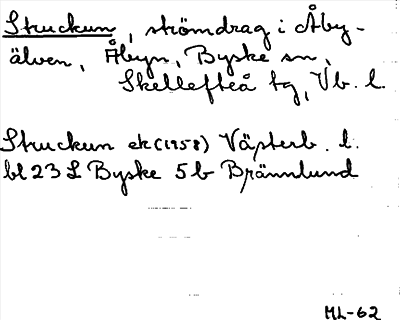 Struckun, strömdrag i Åby-
älven, Åbyn, Byske sn,
Skellefteå tg, Vb. l.
Struckun ek (1958) Västerb. l.
bl 23 L Byske 5b Brännlund
ML-62